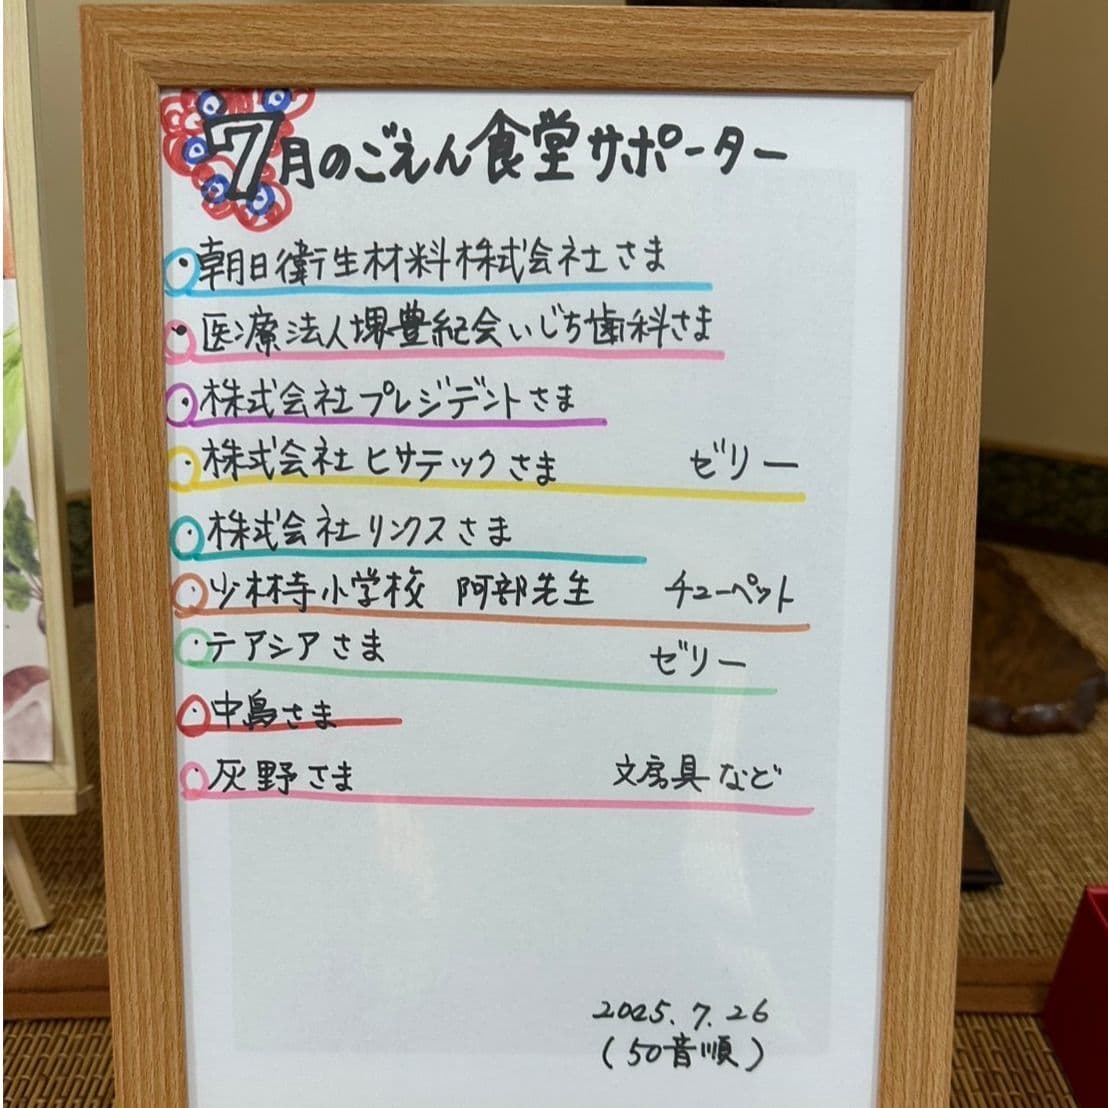 7月のごえん食堂サポーター
・朝日衛生材料株式会社さま
・医療法人堺豊紀会いじち歯科さま
・株式会社プレジデントさま
・株式会社ヒサテックさま ゼリー
・株式会社リンクスさま
・少林寺小学校 阿部先生 チューペット
・テアシアさま ゼリー
・中島さま
・灰野さま 文房具など
2025.7.26
(50音順)